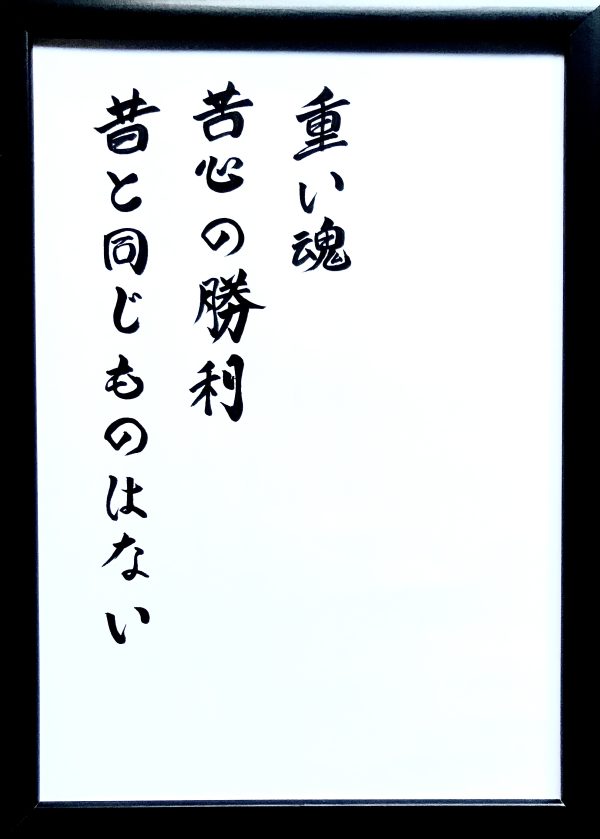 重い魂
苦心の勝利
昔と同じものはない